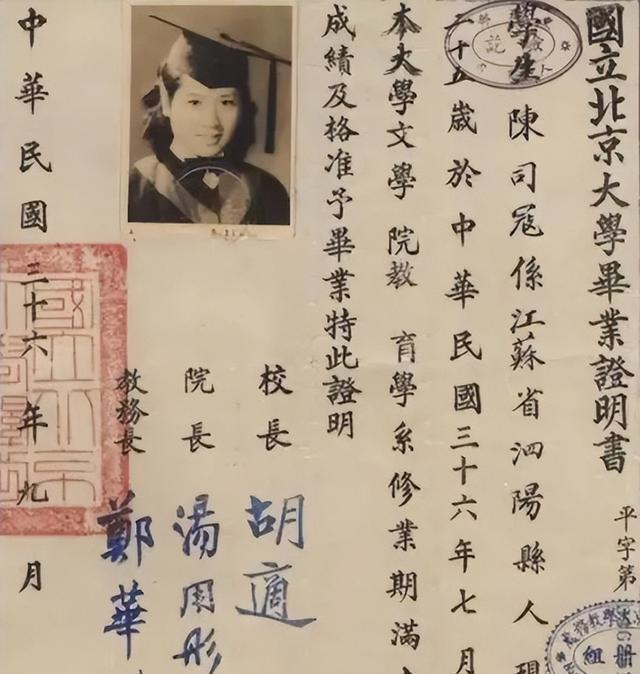 國立北京大學畢業證明書
平字第
學生陳司寇係江蘇省泗陽縣人現
二十五歲於中華民國三十六年七月
本大學文學院教育學系修業期滿
成績及格准予畢業特此證明
校長 胡適
院長 湯用彤
教務長 鄭華
中華民國三十六年九月
組冊